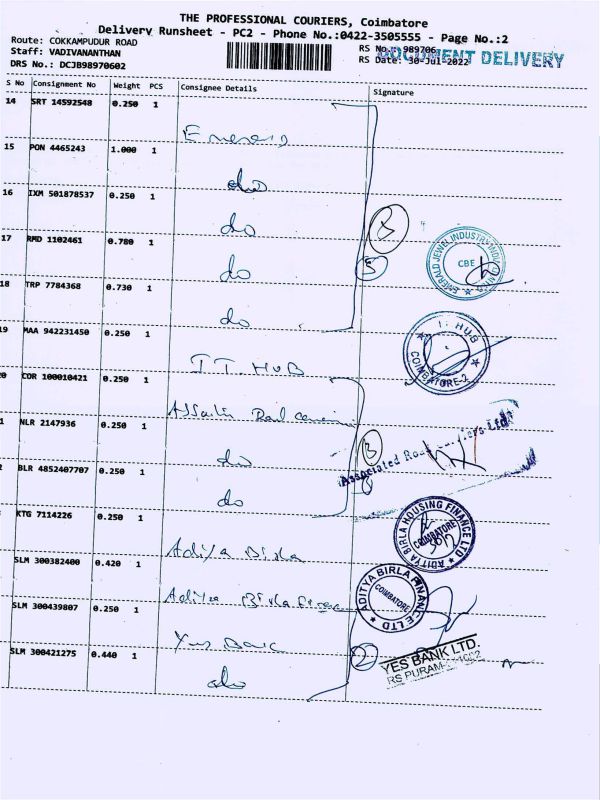 THE PROFESSIONAL COURIERS, Coimbatore
Delivery Runsheet - PC2 - Phone No.:0422-3505555 - Page No.:2
Route: COKKAMPUDUR ROAD
Staff: VADIVANANTHAN
DRS No.: DCJB98970602
RS No.: 989706
RS Date: 30-Jul-2022
DOCUMENT DELIVERY
S No Consignment No Weight PCS Consignee Details Signature
14 SRT 14592548 0.250 1
15 PON 4465243 1.000 1 do
16 IXM 501878537 0.250 1 do
17 RMD 1102461 0.780 1 do
18 TRP 7784368 0.730 1 do
5
EMERALD JEWEL INDUSTRY INDIA
CBE
19 MAA 942231450 0.250 1 I T. HUB
I.T. HUB
COIMBATORE-2
0 COR 100010421 0.250 1
1 NLR 2147936 0.250 1 do
2 BLR 4852407707 0.250 1 do
3
Associated Road Carriers Ltd
KTG 7114226 0.250 1 Aditya Birla
ADITYA BIRLA HOUSING FINANCE LTD
COIMBATORE
SLM 300382400 0.420 1 Aditya Birla
ADITYA BIRLA FINANCE LTD
COIMBATORE
SLM 300439807 0.250 1 Yes Bank
SLM 300421275 0.440 1 do
2
YES BANK LTD.
RS PURAM